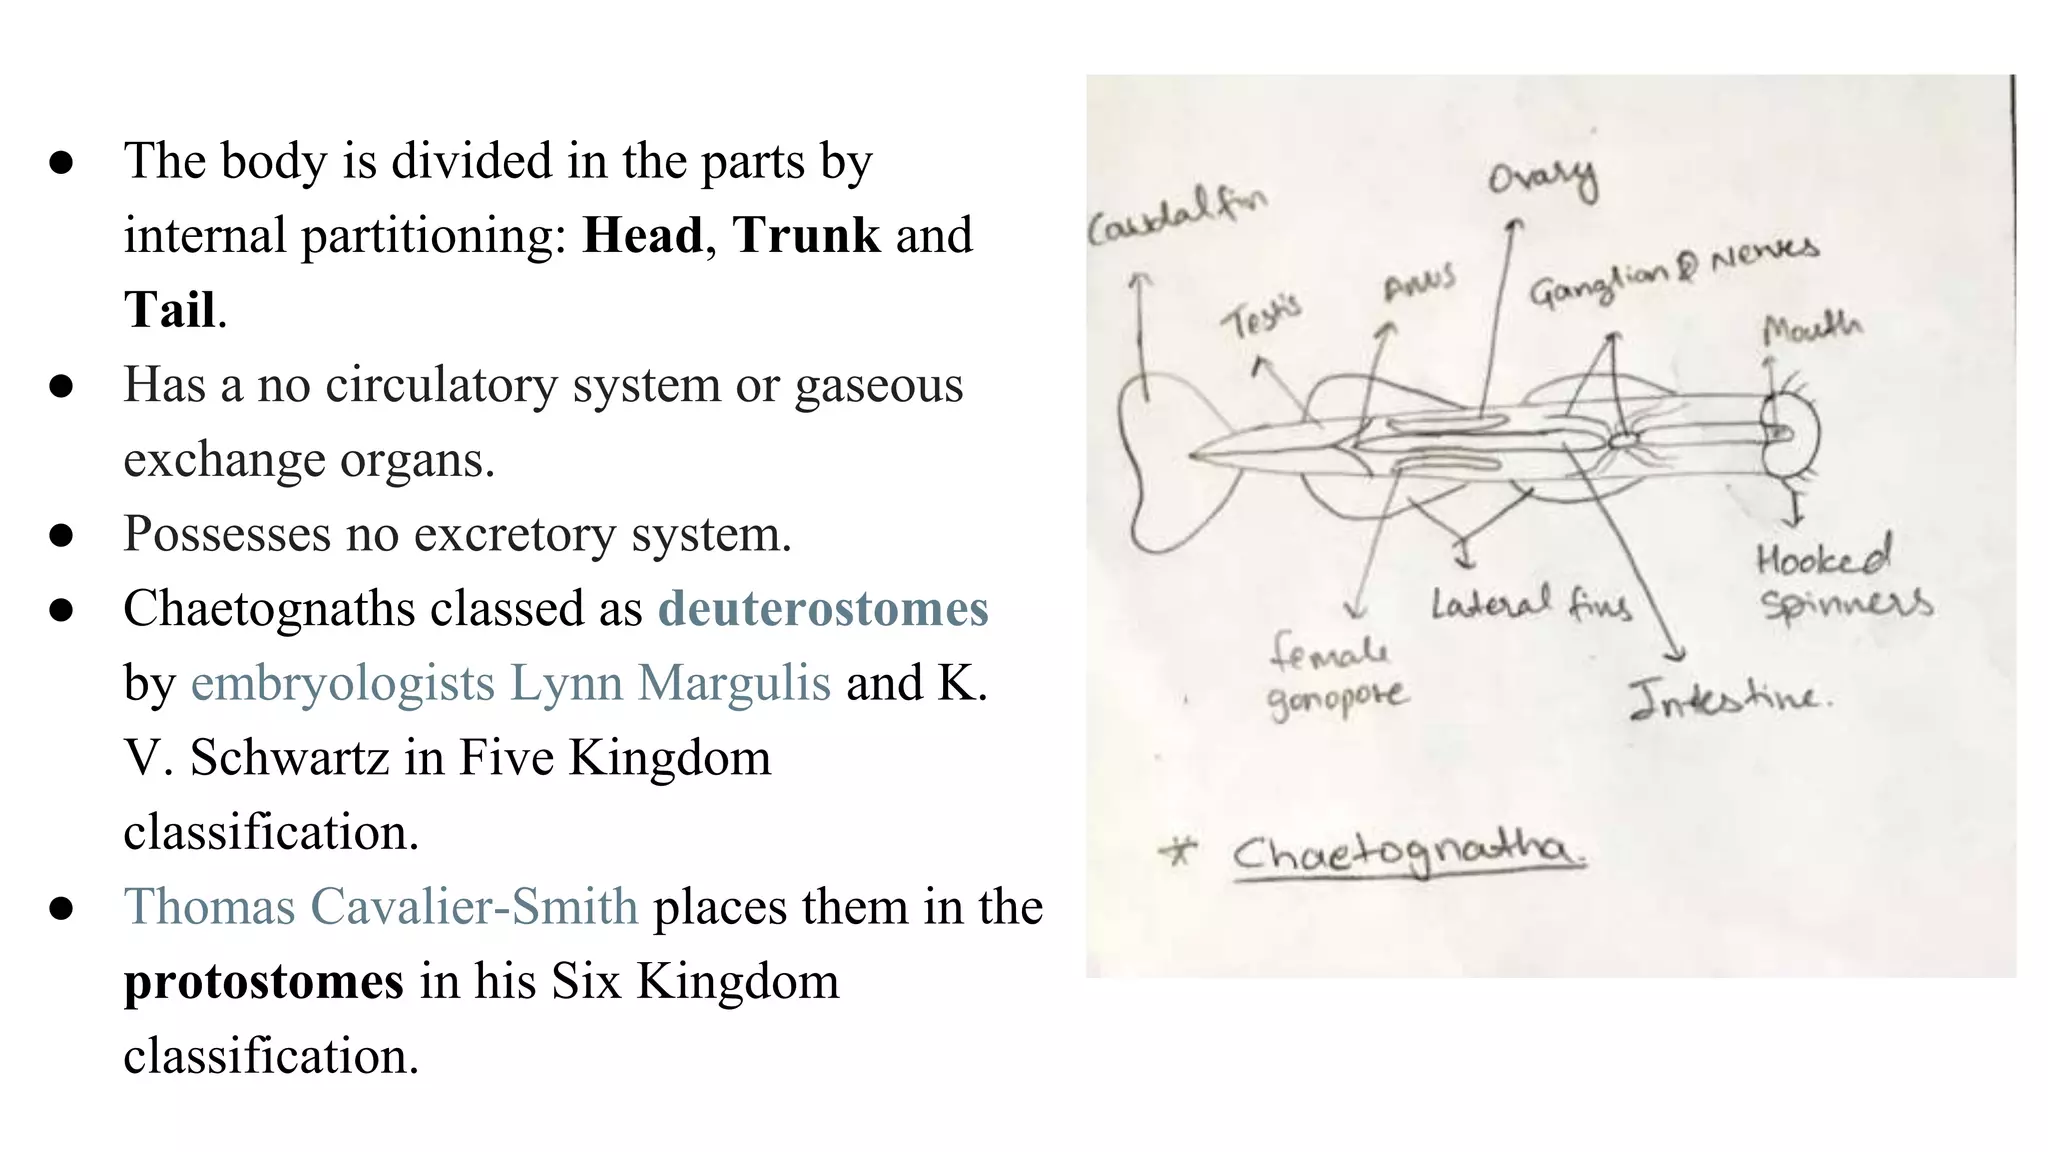 ● The body is divided in the parts by
internal partitioning: Head, Trunk and
Tail.
● Has a no circulatory system or gaseous
exchange organs.
● Possesses no excretory system.
● Chaetognaths classed as deuterostomes
by embryologists Lynn Margulis and K.
V. Schwartz in Five Kingdom
classification.
● Thomas Cavalier-Smith places them in the
protostomes in his Six Kingdom
classification.
Caudal fin
Ovary
Testis
Anus
Ganglian & Nerves
Mouth
Hooked
Spinners
Lateral fins
female
gonopore
Intestine.
* Chaetognatha.